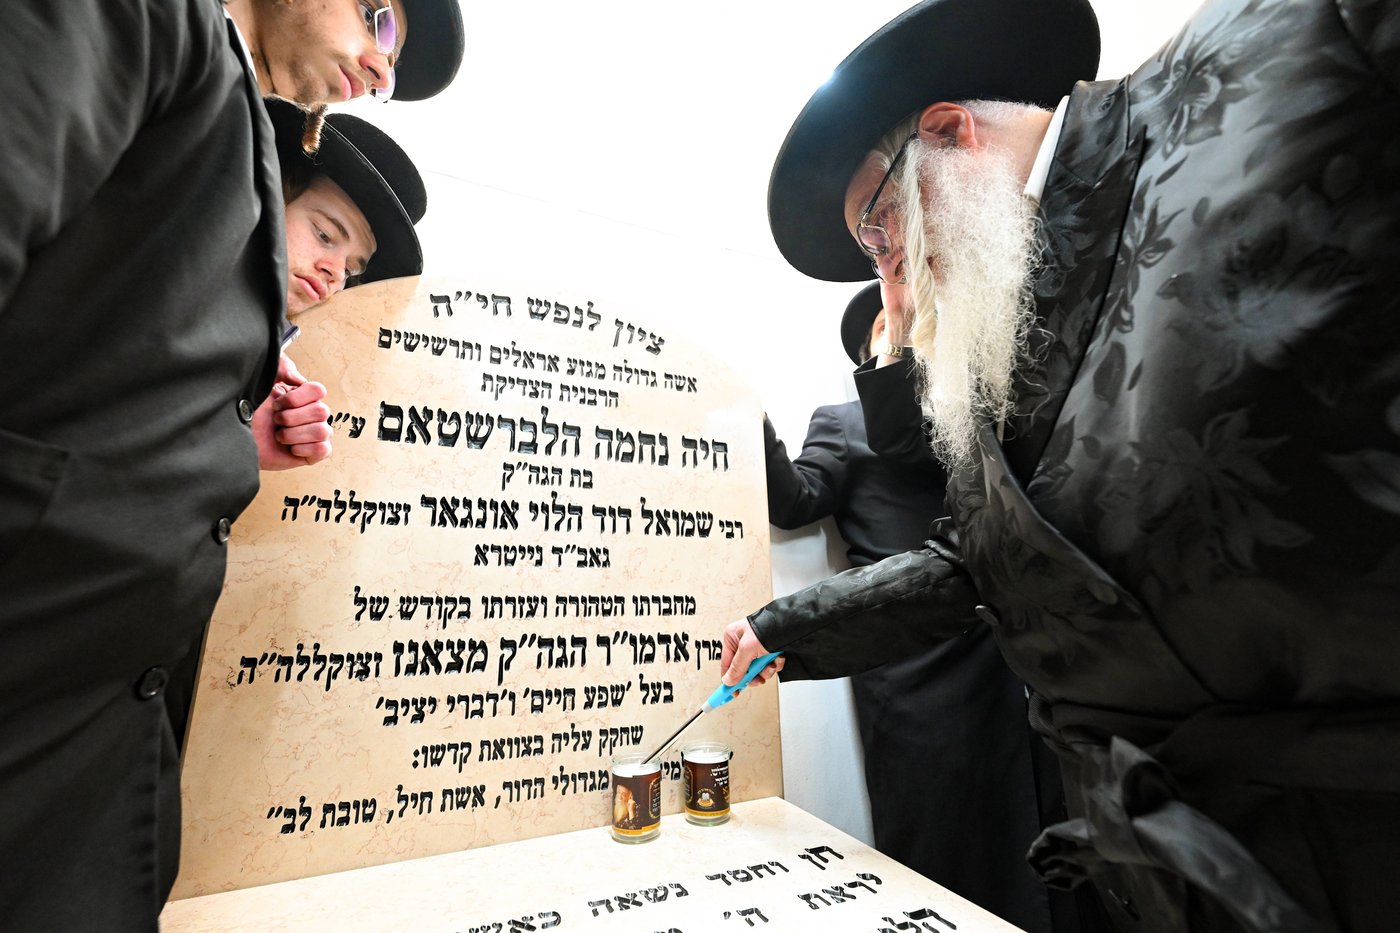 ציון לנפש חי״ה
אשה גדולה מגזע אראלים ותרשישים
הרבנית הצדיקת
חיה נחמה הלברשטאם ע״
בת הגה״ק
רבי שמואל דוד הלוי אונגאר זצוקללה״ה
גאב״ד נייטרא
מחברתו הטהורה ועזרתו בקודש של
מרן אדמו״ר הגה״ק מצאנז זצוקללה״ה
בעל ׳שפע חיים׳ ו׳דברי יציב׳
שחקק עליה בצוואת קדשו:
מגדולי הדור, אשת חיל, טובת לב״
חן וחסד נשאה
יראת ה׳